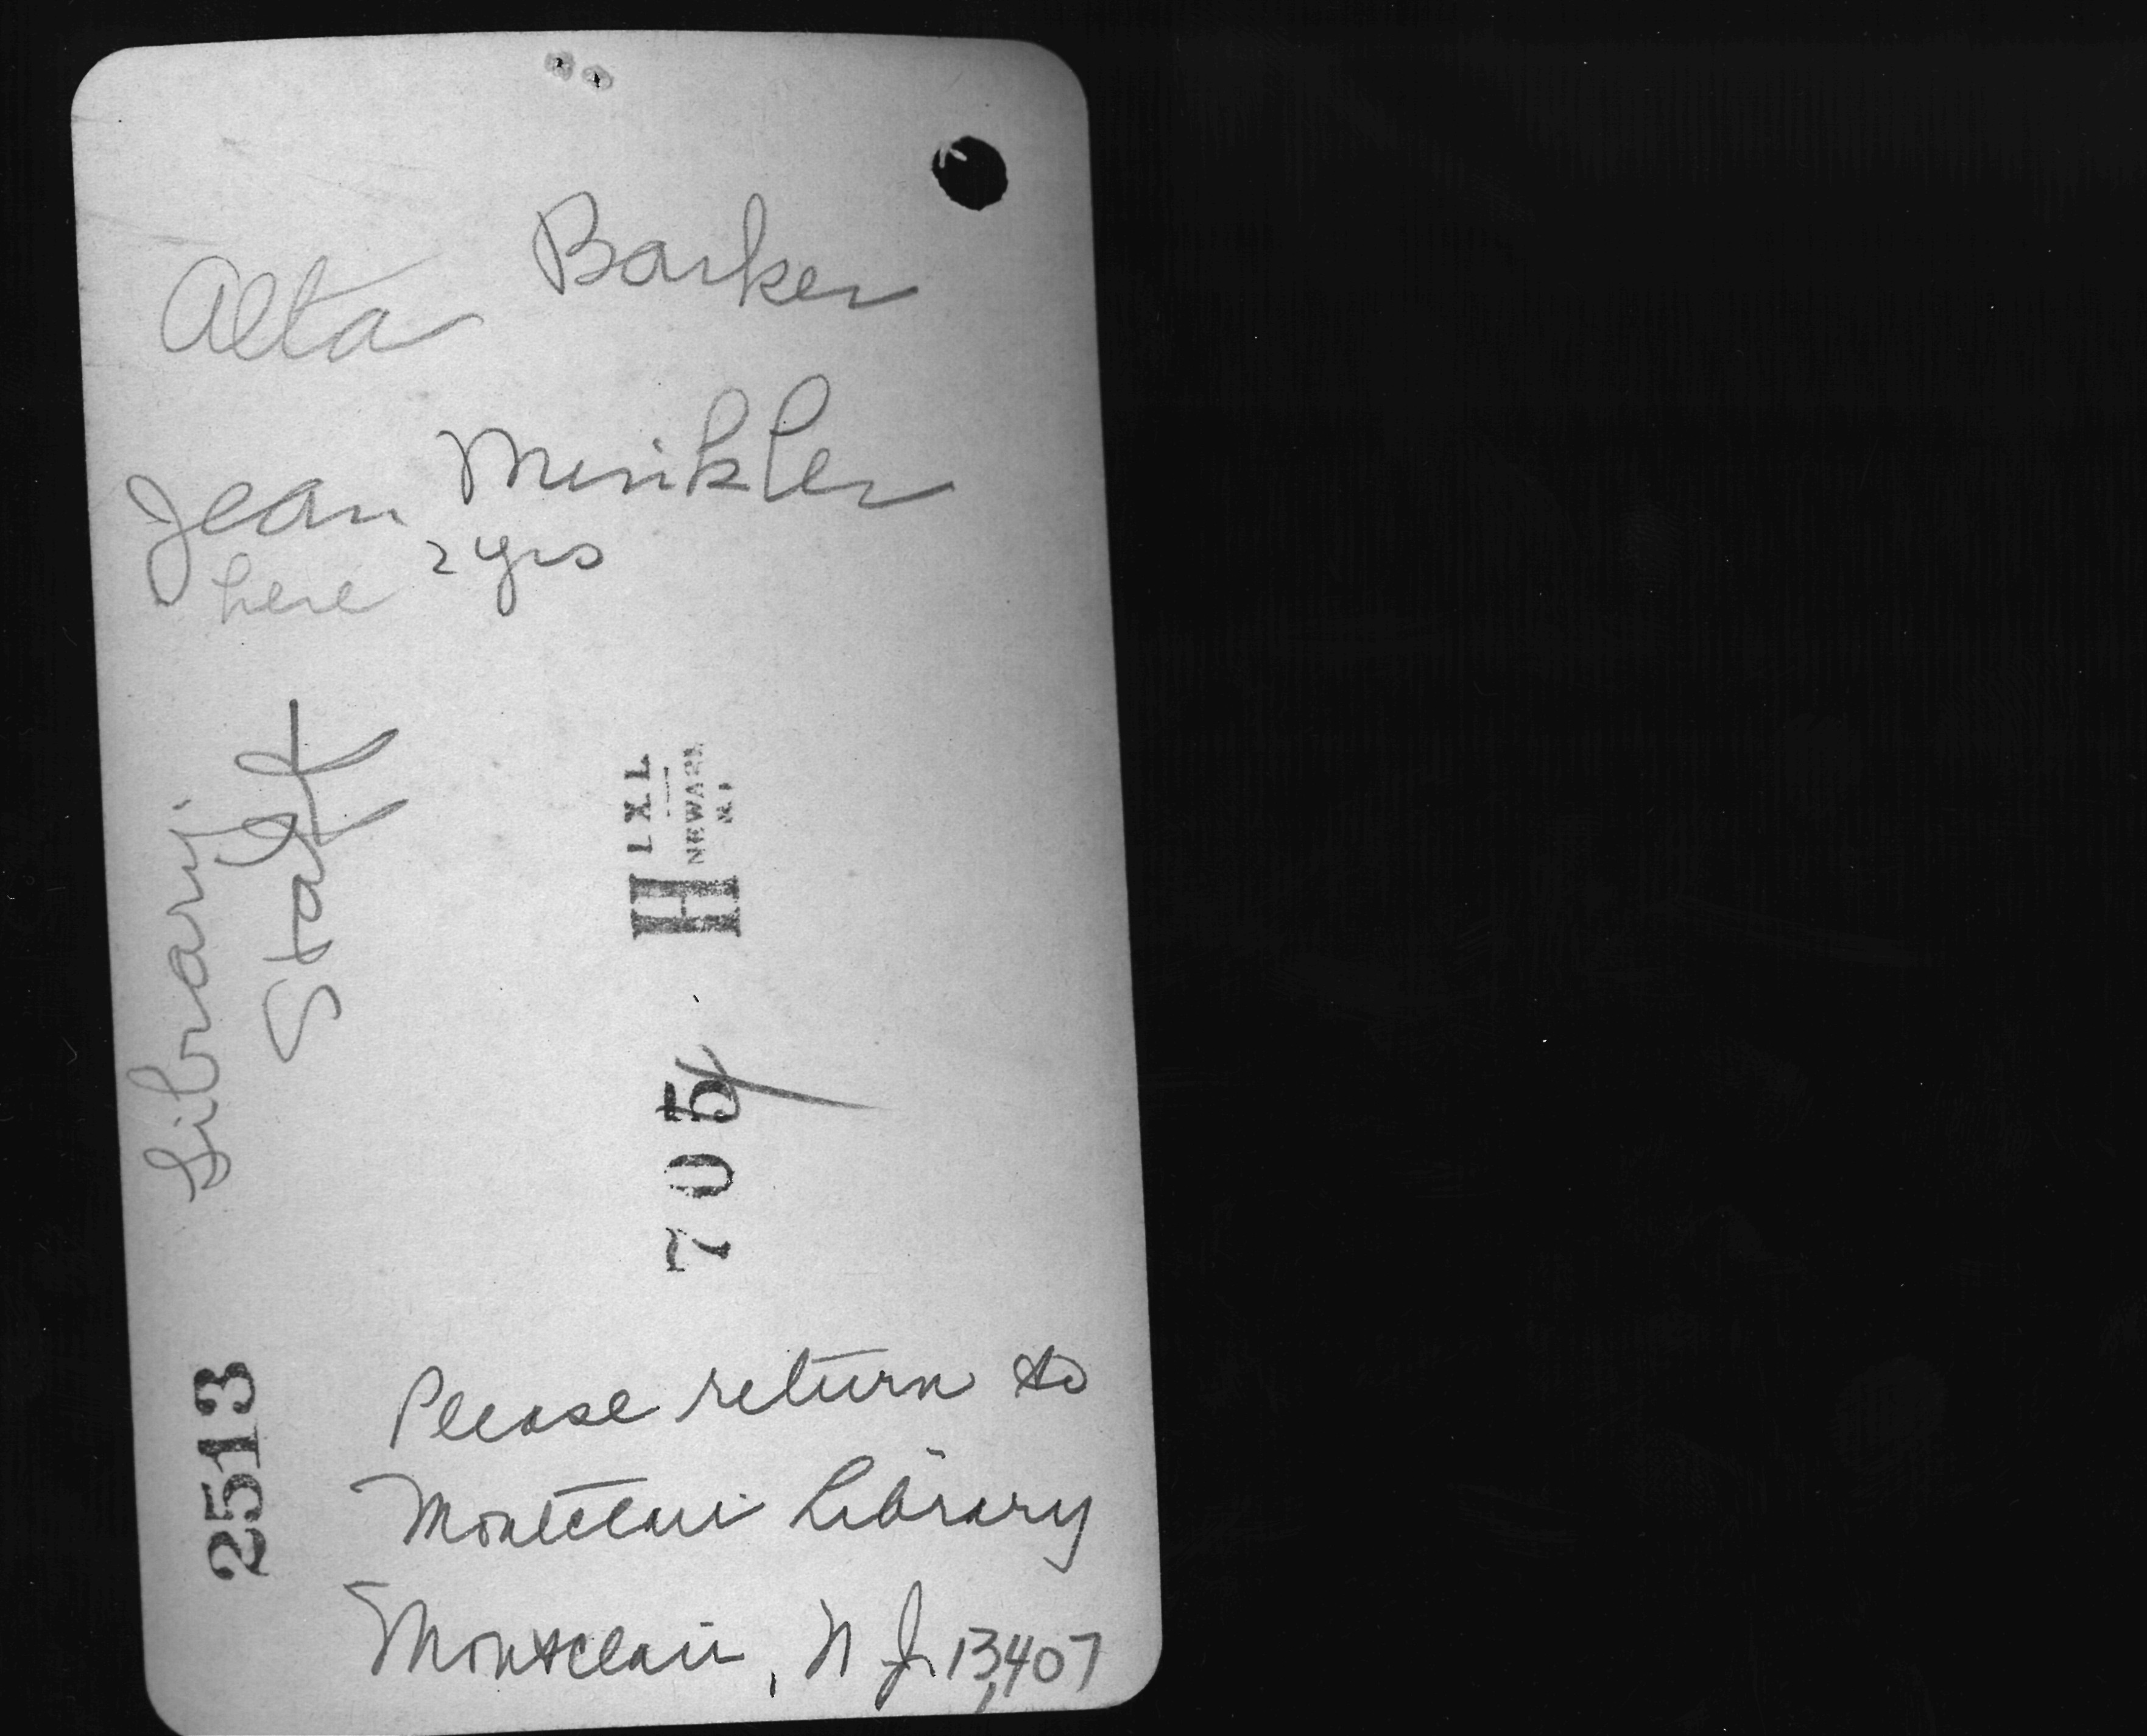 Alta Barker
Jean Minkler
here 2 yrs
Library
Staff
H IXL
NEWARK
N.J.
705
2513
Please return to
Montclair Library
Montclair, N J. 13,407